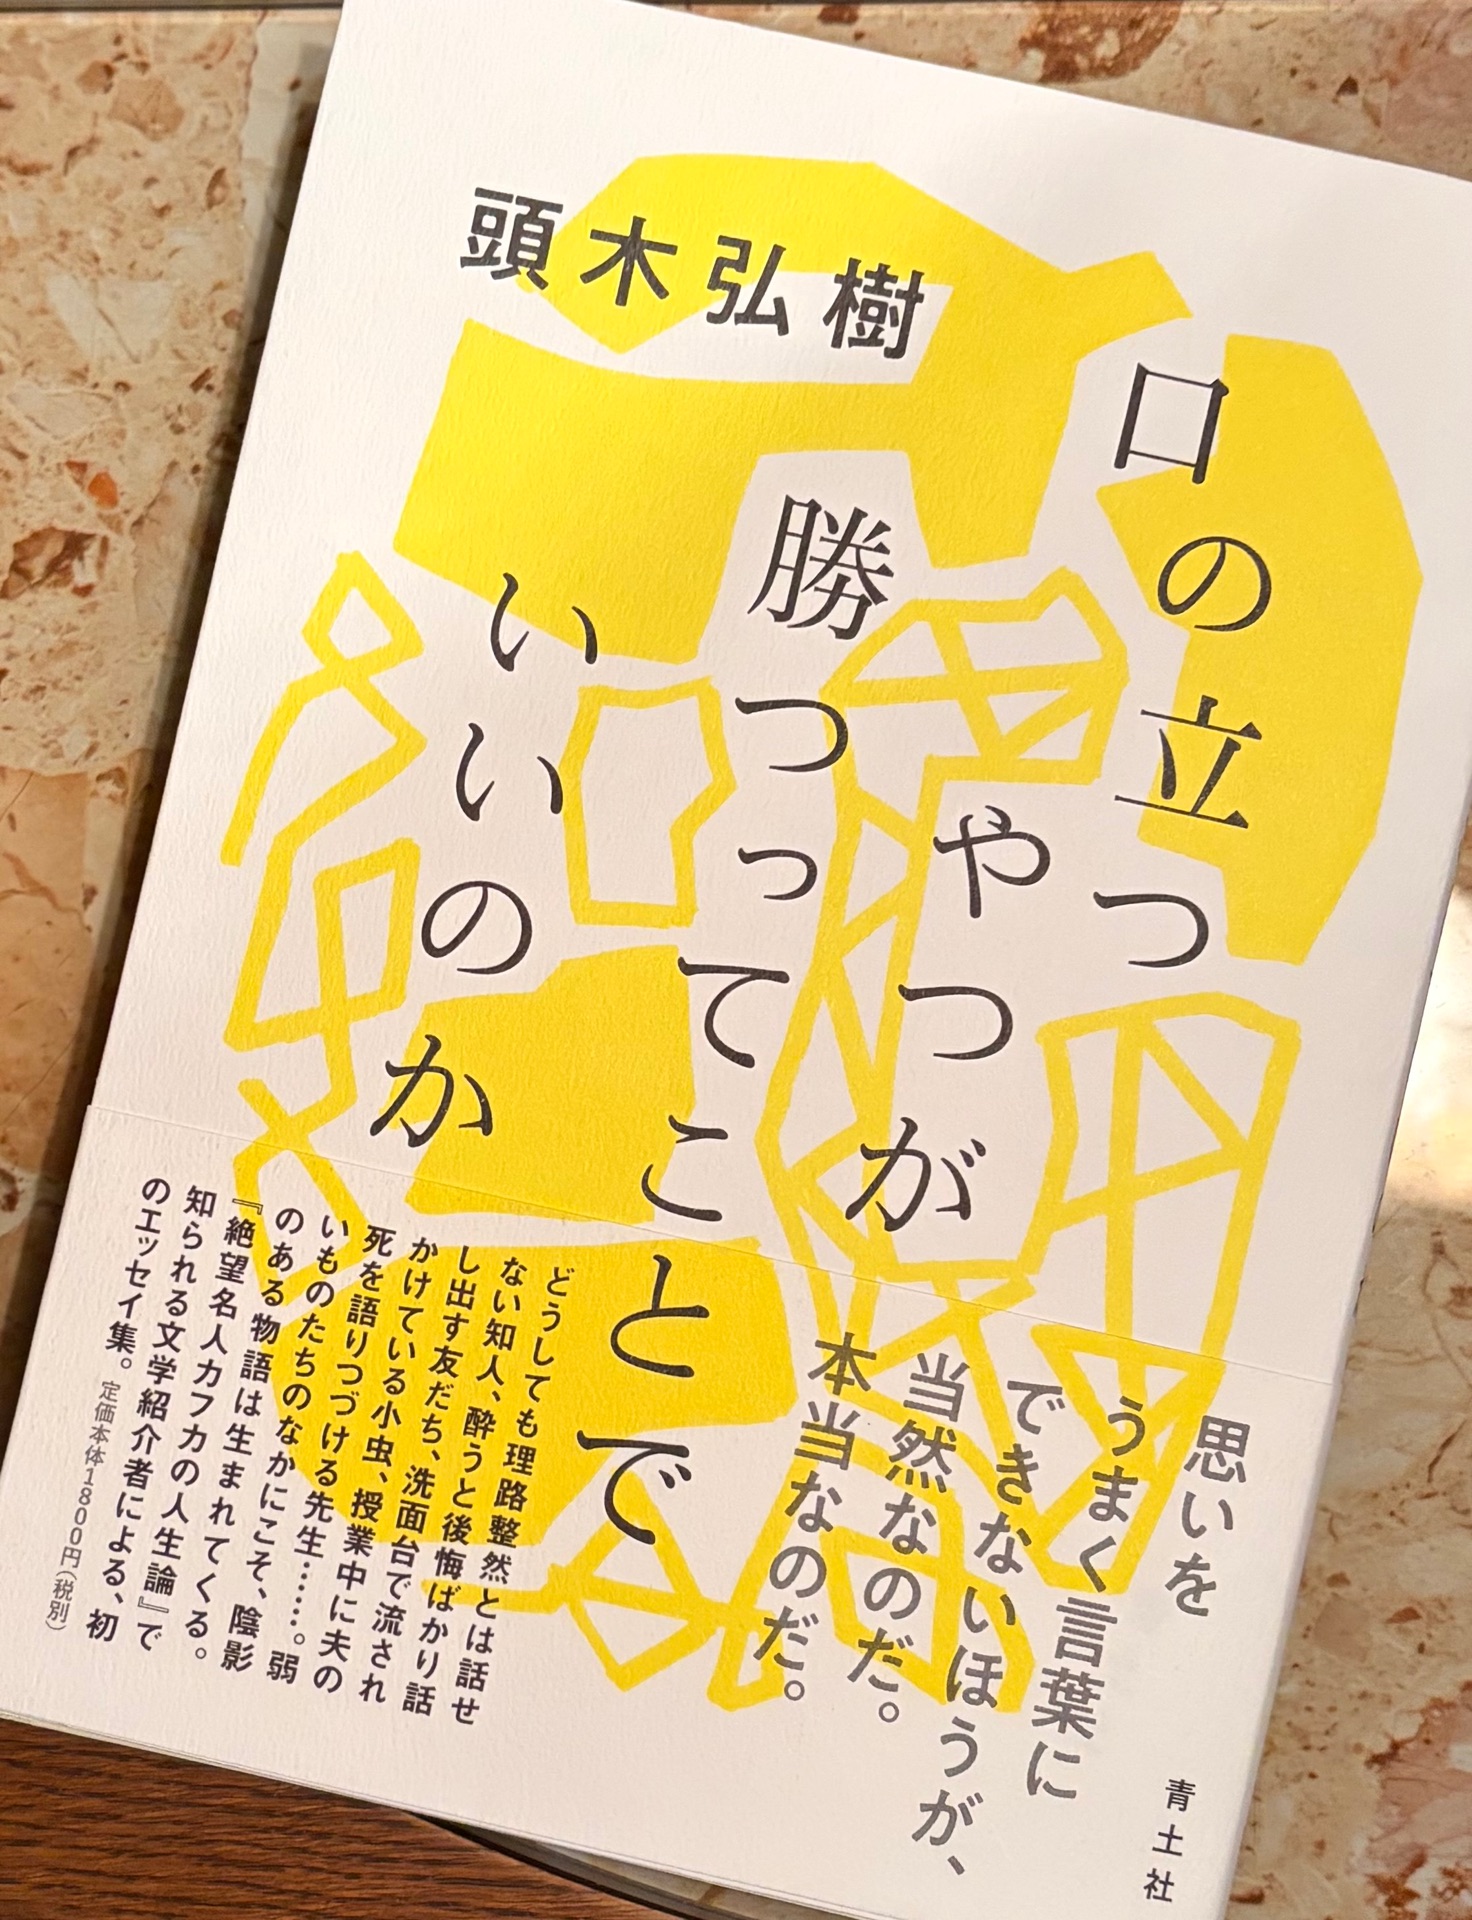 頭木弘樹
口の立つ
やつが
勝つってことで
いいのか
思いを
うまく言葉に
できないほうが、
当然なのだ。
本当なのだ。
どうしても理路整然とは話せ
ない知人、酔うと後悔ばかり話
し出す友だち、洗面台で流され
かけている小虫、授業中に夫の
死を語りつづける先生……。弱
いものたちのなかにこそ、陰影
のある物語は生まれてくる。
『絶望名人カフカの人生論』で
知られる文学紹介者による、初
のエッセイ集。
定価本体1800円(税別)
青土社